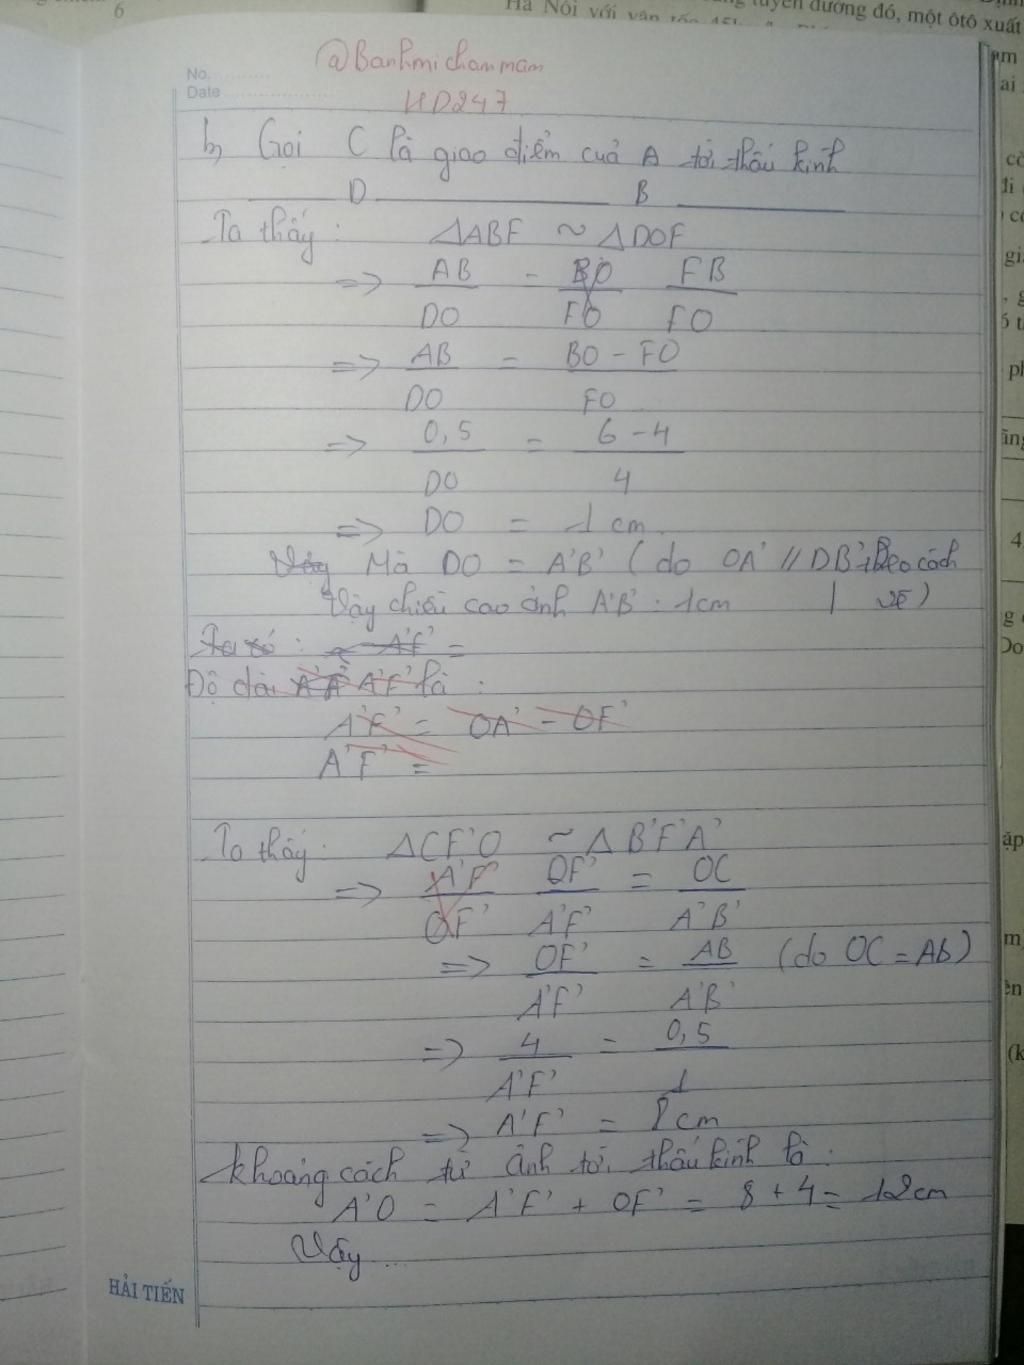 6
Hà Nội với vận tốc
tuyến đường đó, một ôtô xuất
@Banhmichammam
No.
Date
HD247
b, Gọi C là giao điểm của A tới thấu kính
D B
Ta thấy: ΔABF ~ ΔDOF
=> AB/DO = FB/FO
=> AB/DO = BO - FO/FO
=> 0,5/DO = 6 - 4/4
=> DO = 1 cm
Vậy Mà DO = A'B' (do OA' // DB' theo cách
Vậy chiều cao ảnh A'B': 1cm | vẽ)
Ta có: A'F' =
Độ dài A'F' là:
A'F' = OA' - OF'
A'F' =
Ta thấy: ΔCF'O ~ ΔB'F'A'
=> A'F'/OF' OF'/A'F' = OC/A'B'
=> OF'/A'F' = AB/A'B' (do OC = AB)
=> 4/A'F' = 0,5/1
=> A'F' = 8 cm
Khoảng cách từ ảnh tới thấu kính là:
A'O = A'F' + OF' = 8 + 4 = 12cm
Vậy ...
HẢI TIẾN